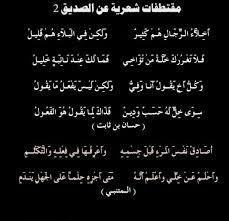 مقتطفات شعرية عن الصديق 2
أَخِلَّاءُ الرِّجَالِ هُمْ كَثِيرٌ وَلَكِنْ فِي البَلَاءِ هُمْ قَلِيلُ
فَلَا تَغْرُرْكَ خُلَّةُ مَنْ تُؤَاخِي فَمَا لَكَ عِنْدَ نَائِبَةٍ خَلِيلُ
وَكُلُّ أَخٍ يَقُولُ أَنَا وَفِيٌّ وَلَكِنْ لَيْسَ يَفْعَلُ مَا يَقُولُ
سِوَى خِلٍّ لَهُ حَسَبٌ وَدِينٌ فَذَاكَ لِمَا يَقُولُ هُوَ الفَعُولُ
( حسان بن ثابت )
أُصَادِقُ نَفْسَ المَرْءِ قَبْلَ جِسْمِهِ وَأَعْرِفُهَا فِي فِعْلِهِ وَالتَّكَلُّمِ
وَأَحْلُمُ عَنْ خِلِّي وَأَعْلَمُ أَنَّهُ مَتَى أَجْزِهِ حِلْمًا عَلَى الجَهْلِ يَنْدَمِ
( المتنبي )